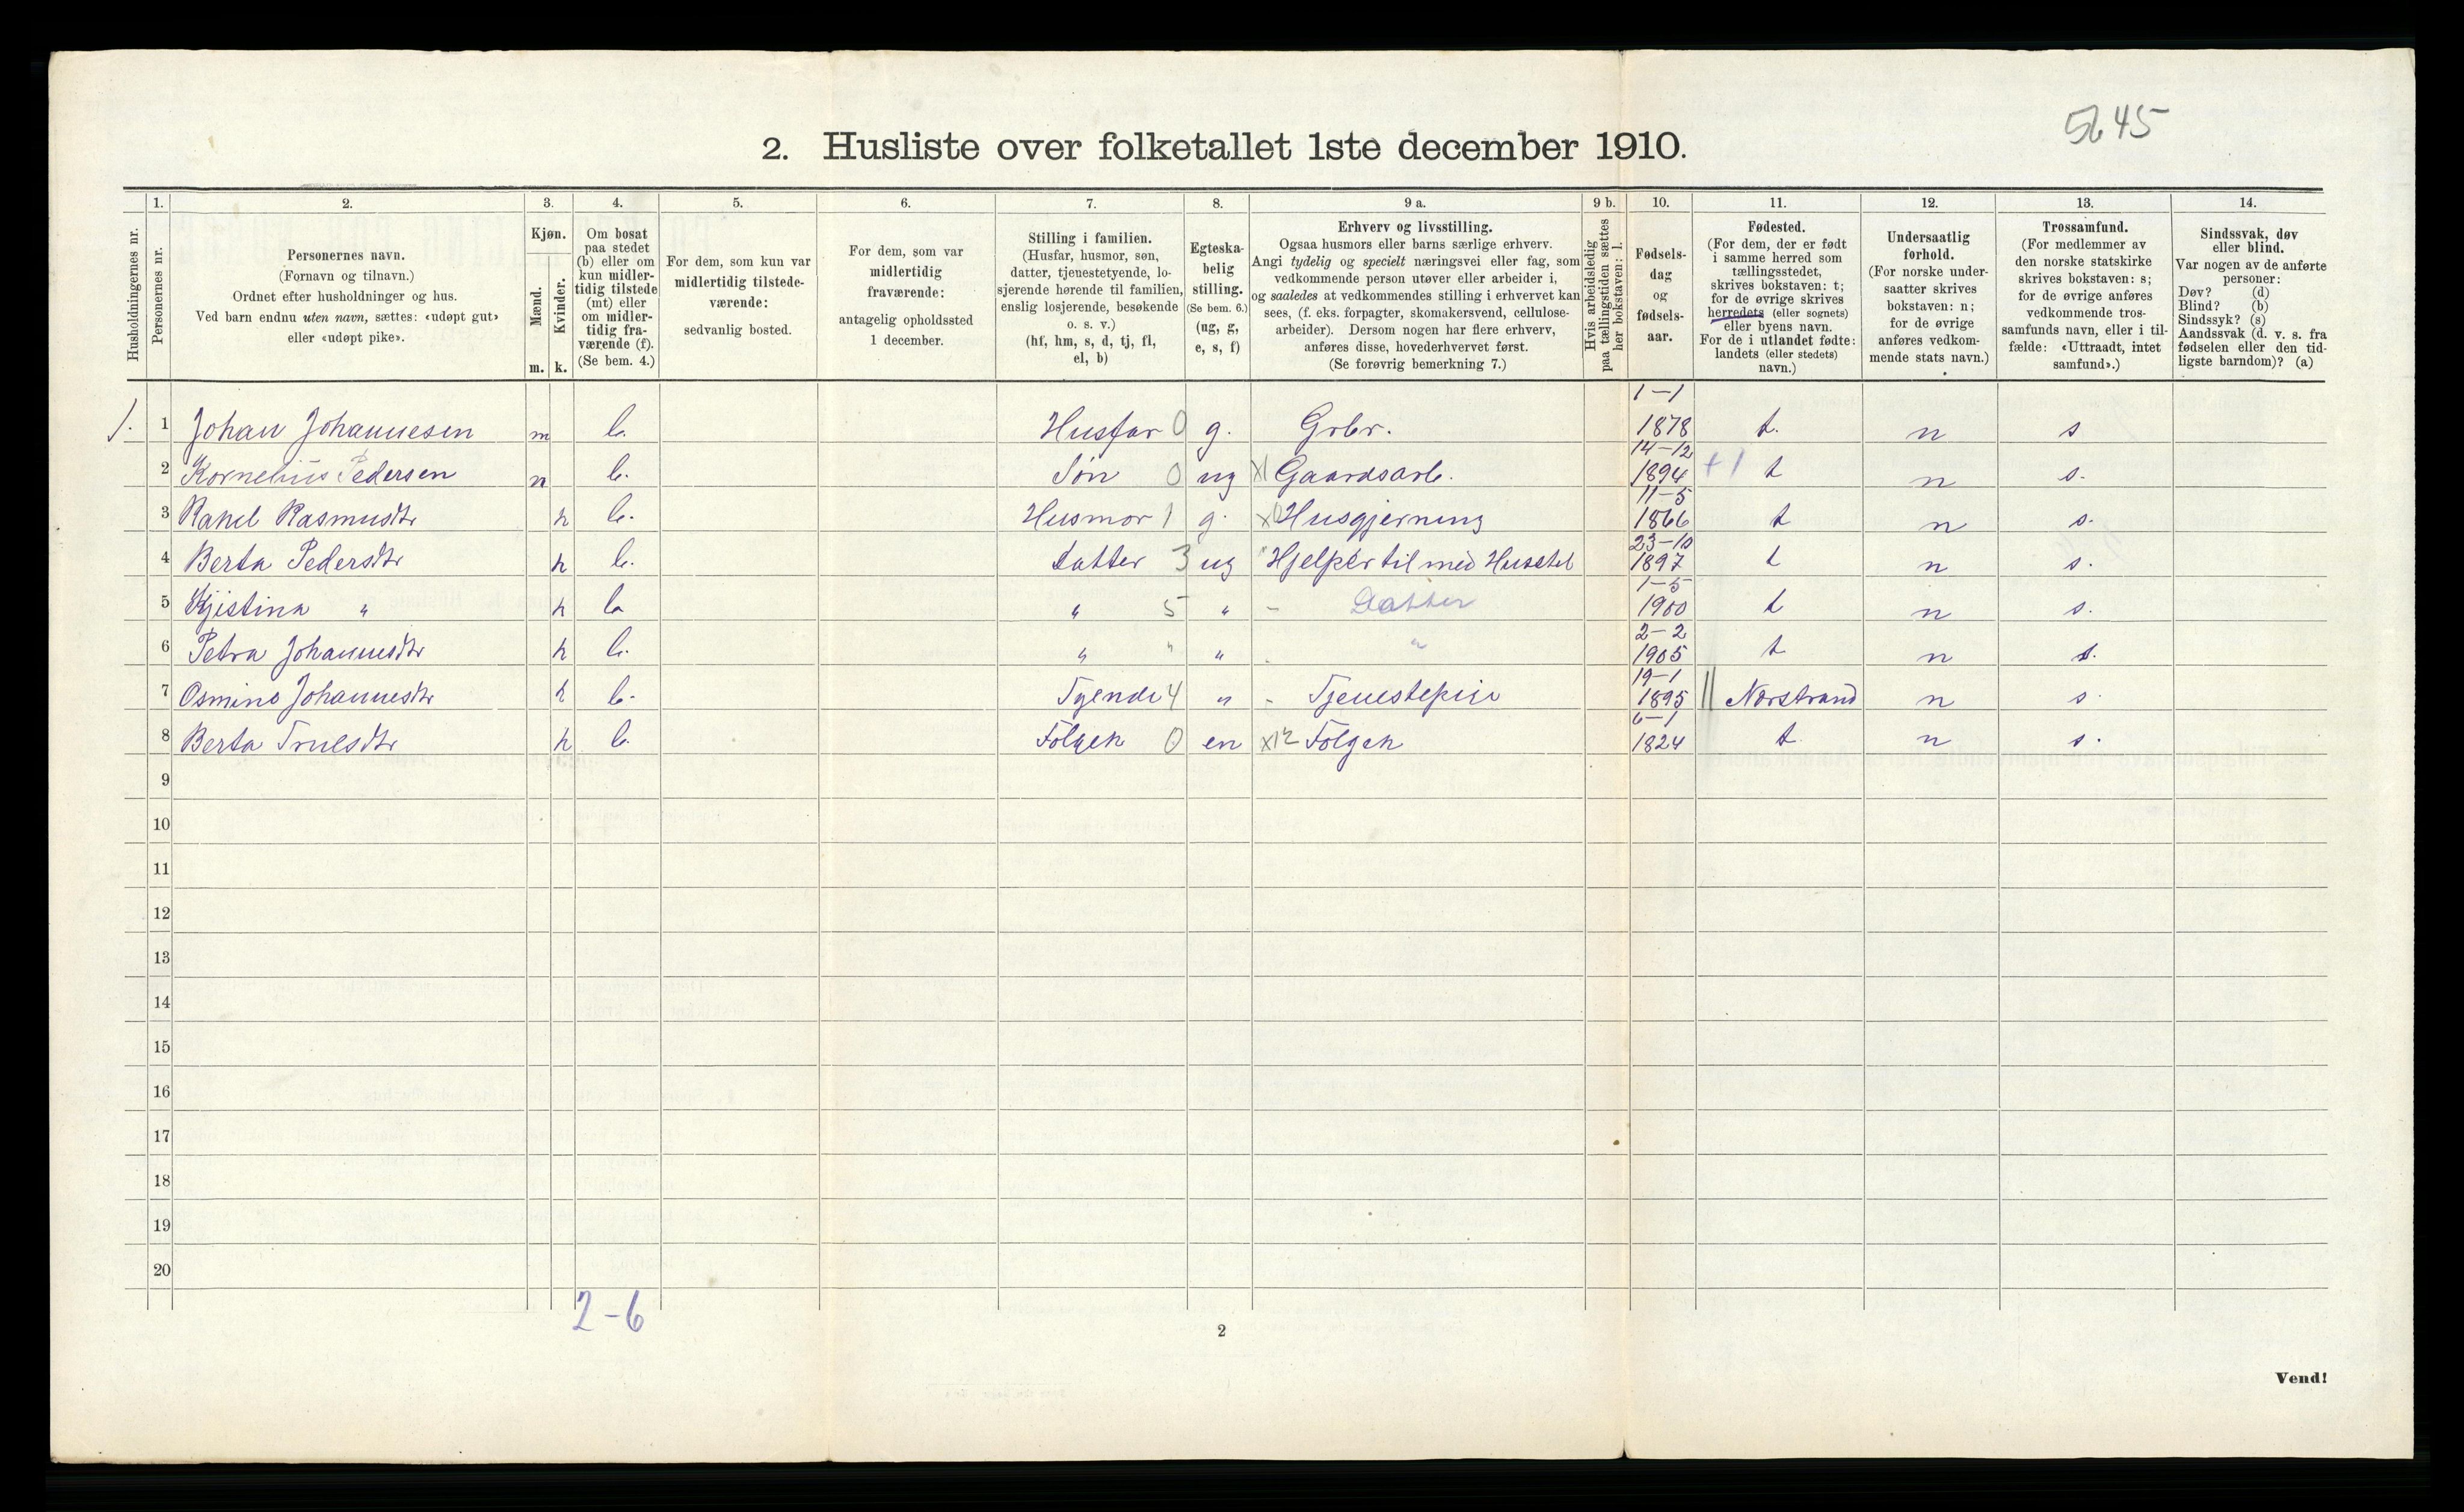 5645
2. Husliste over folketallet 1ste december 1910.
Husholdningernes nr.
1. Personernes nr.
2. Personernes navn.
(Fornavn og tilnavn.)
Ordnet efter husholdninger og hus.
Ved barn endnu uten navn, sættes: «udøpt gut»
eller «udøpt pike».
3. Kjøn.
Mænd. m.
Kvinder. k.
4. Om bosat
paa stedet
(b) eller om
kun midler-
tidig tilstede
(mt) eller
om midler-
tidig fra-
værende (f).
(Se bem. 4.)
5. For dem, som kun var
midlertidig tilstede-
værende:
sedvanlig bosted.
6. For dem, som var
midlertidig
fraværende:
antagelig opholdssted
1 december.
7. Stilling i familien.
(Husfar, husmor, søn,
datter, tjenestetyende, lo-
sjerende hørende til familien,
enslig losjerende, besøkende
o. s. v.)
(hf, hm, s, d, tj, fl,
el, b)
8. Egteska-
belig
stilling.
(Se bem. 6.)
(ug, g,
e, s, f)
9 a. Erhverv og livsstilling.
Ogsaa husmors eller barns særlige erhverv.
Angi tydelig og specielt næringsvei eller fag, som
vedkommende person utøver eller arbeider i,
og saaledes at vedkommendes stilling i erhvervet kan
sees, (f. eks. forpagter, skomakersvend, cellulose-
arbeider). Dersom nogen har flere erhverv,
anføres disse, hovederhvervet først.
(Se forøvrig bemerkning 7.)
9 b. Hvis arbeidsledig
paa tællingstiden sættes
her bokstaven: l.
10. Fødsels-
dag
og
fødsels-
aar.
11. Fødested.
(For dem, der er født
i samme herred som
tællingsstedet,
skrives bokstaven: t;
for de øvrige skrives
herredets (eller sognets)
eller byens navn.
For de i utlandet fødte:
landets (eller stedets)
navn.)
12. Undersaatlig
forhold.
(For norske under-
saatter skrives
bokstaven: n;
for de øvrige
anføres vedkom-
mende stats navn.)
13. Trossamfund.
(For medlemmer av
den norske statskirke
skrives bokstaven: s;
for de øvrige anføres
vedkommende tros-
samfunds navn, eller i til-
fælde: «Uttraadt, intet
samfund».)
14. Sindssvak, døv
eller blind.
Var nogen av de anførte
personer:
Døv? (d)
Blind? (b)
Sindssyk? (s)
Aandssvak (d. v. s. fra
fødselen eller den tid-
ligste barndom)? (a)
1. 1 Johan Johannesen m b. Husfar 0 g. Grbr. 1-1 1878 t. n s
2 Kornelius Pedersen m b. Søn 0 ug x1 Gaardsarb. 14-12 1894 +1 t n s.
3 Rakel Rasmusdtr k b. Husmor 1 g. Husgjerning 11-5 1866 t n s.
4 Berta Pedersdtr k b. Datter 3 ug Hjelper til med Husstel 23-10 1897 t n s.
5 Kjistina " k b " 5 " - Datter 1-5 1900 t n s.
6 Petra Johannesdtr k b. " " " " 2-2 1905 t n s.
7 Osmine Johannesdtr k b. Tyende 4 " - Tjenestepie 19-1 1895 || Nærstrand n s
8 Berta Trulsdtr k b. Følgek 0 en x12 Følgek 6-1 1824 t n s.
9
10
11
12
13
14
15
16
17
18
19
20
2-6
2
Vend!